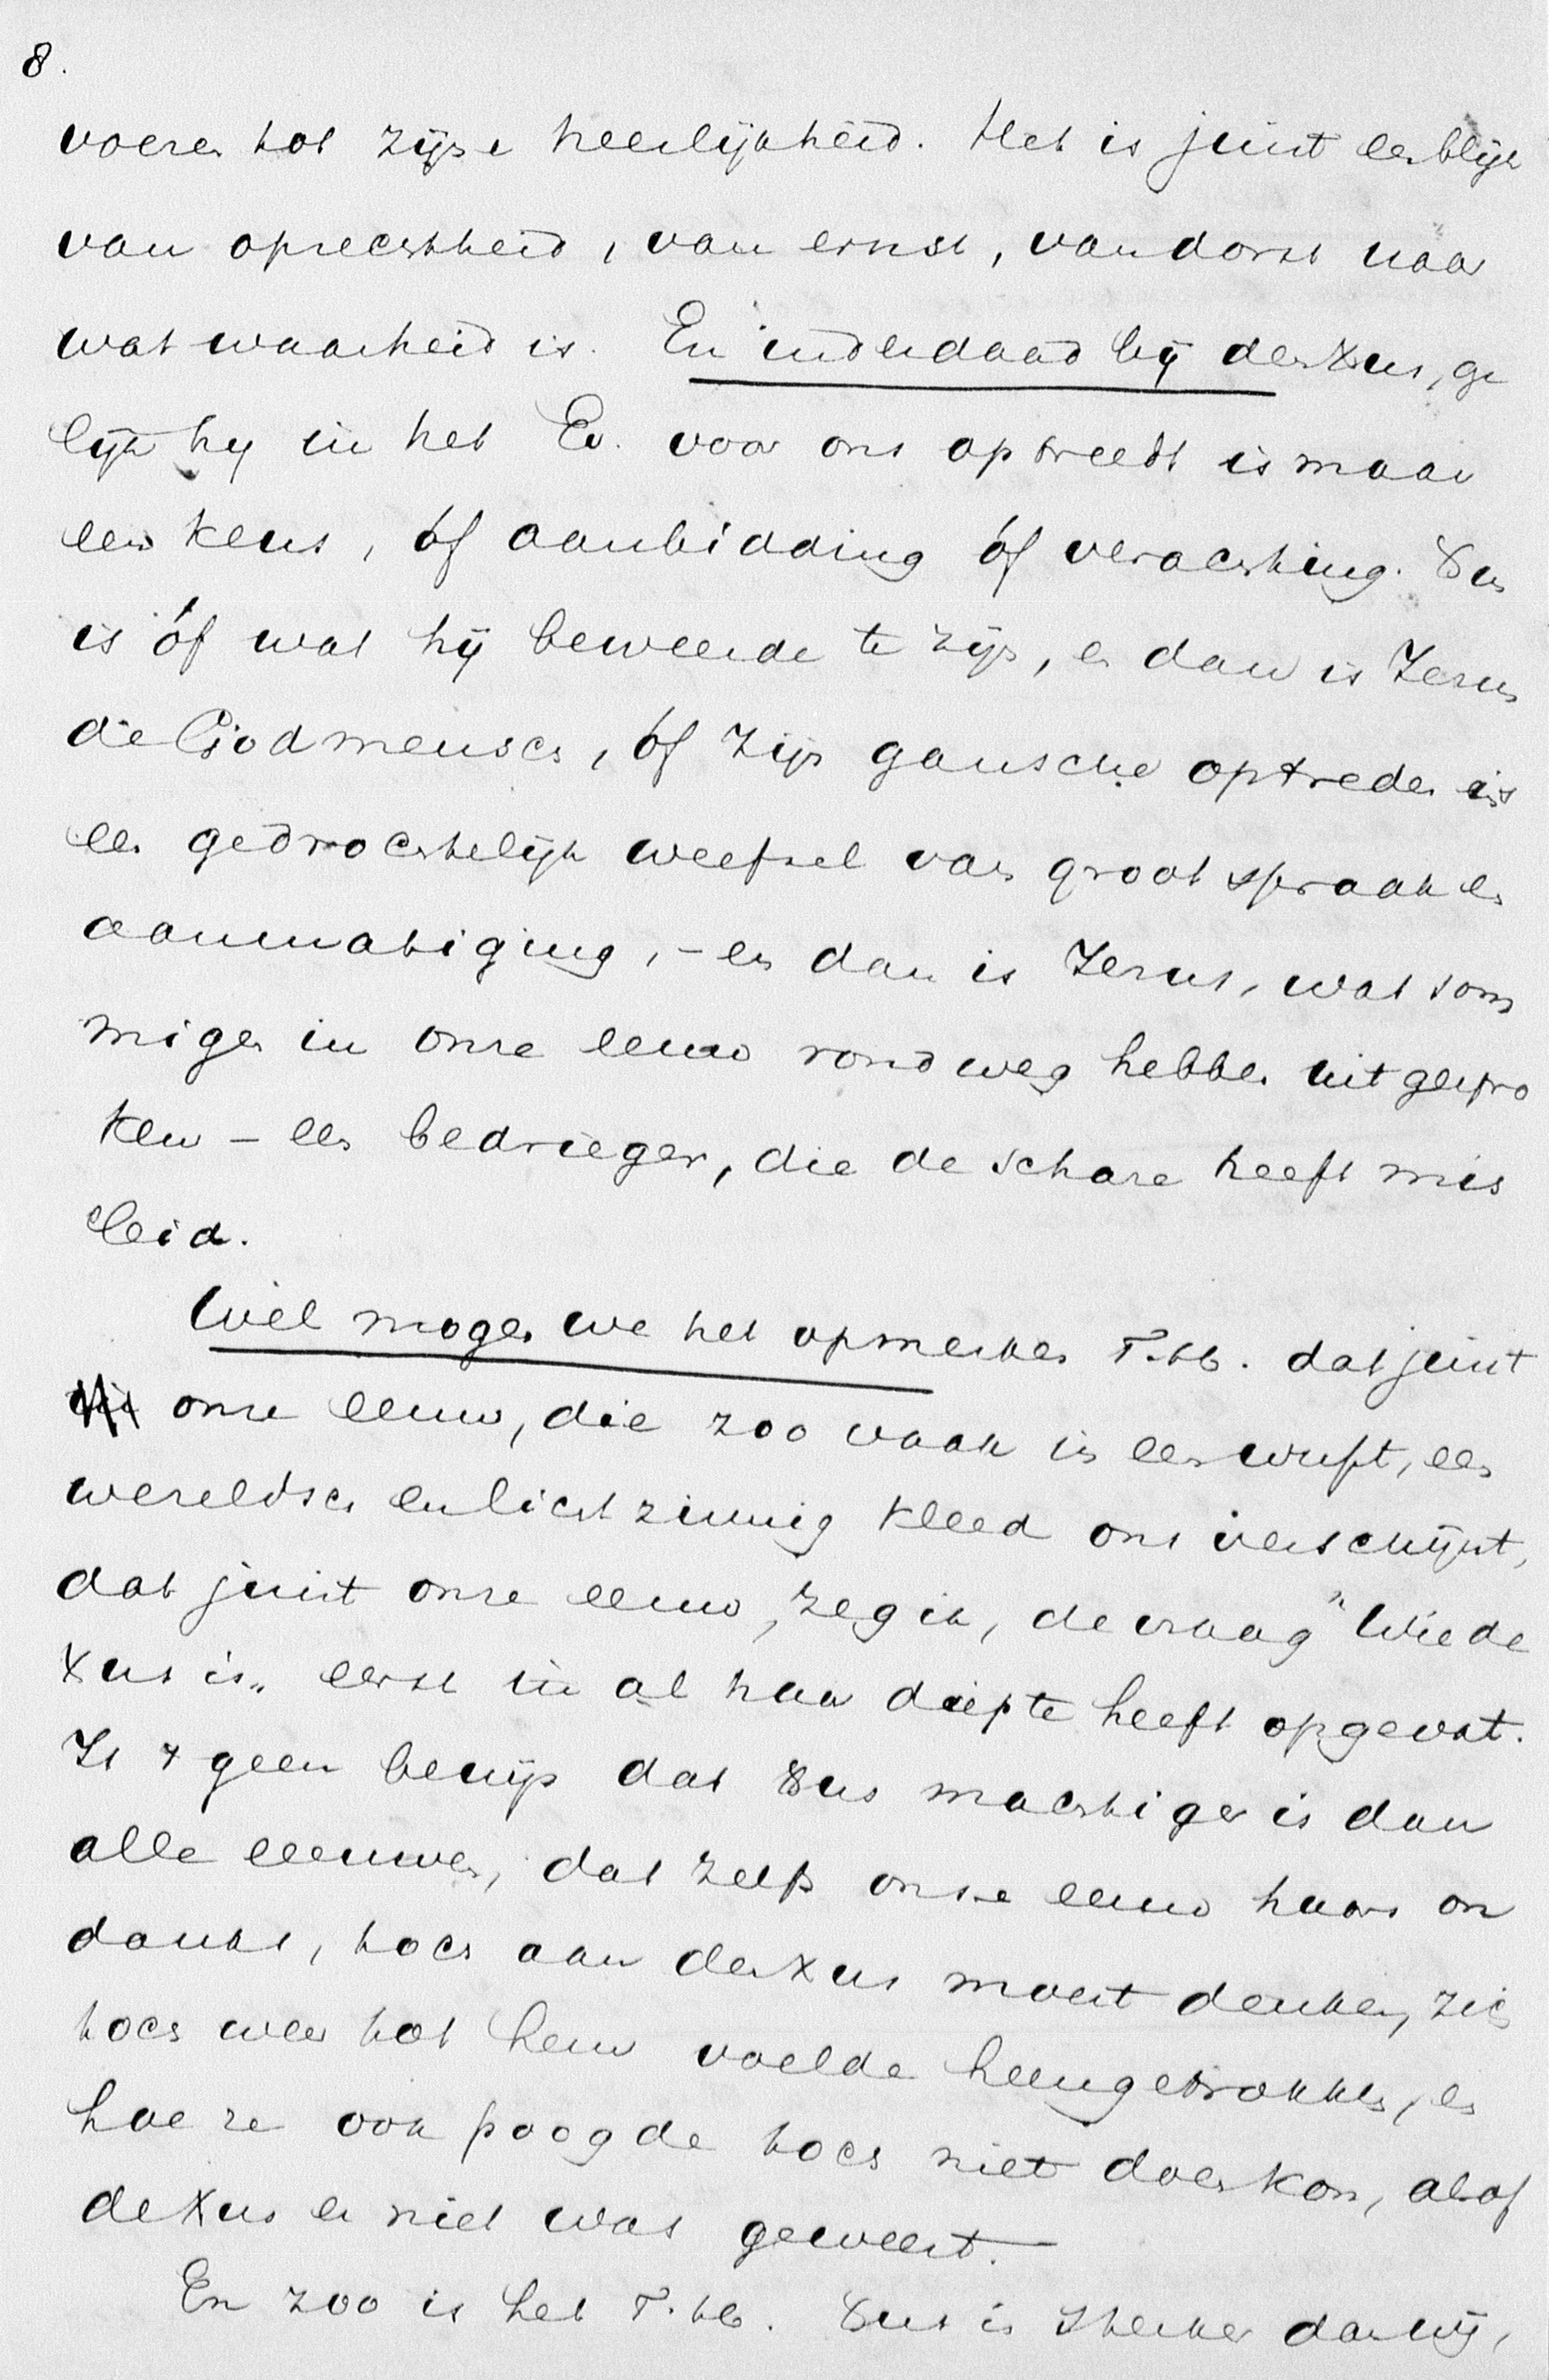 8.
voeren tot zijne heerlijkheid. Het is juist een blijk
van oprechtheid, van ernst, van dorst naar
wat waarheid is. En inderdaad bij den Xus, ge
lijk hij in het Ev. voor ons optreedt is maar
een keus, óf aanbidding óf verachting. Xus
is óf wat hij beweerde te zijn, en dan is Jezus
de Godmensch, óf zijn gansche optreden is
een gedrochtelijk weefsel van grootspraak en
aanmatiging, – en dan is Jezus, wat som
migen in onze eeuw rondweg hebben uitgespro
ken – een bedrieger, die de schare heeft mis
leid.
Wel mogen we het opmerken T. hb. dat juist
onze eeuw, die zoo vaak in een wuft, een
wereldsch en lichtzinnig kleed ons verschijnt,
dat juist onze eeuw, zeg ik, de vraag "Wie de
Xus is" eerst in al haar diepte heeft opgevat.
Is 't geen bewijs dat Xus machtiger is dan
alle eeuwen, dat zelfs onze eeuw haars on
danks, toch aan den Xus moest denken, zich
toch weer tot hem voelde heengetrokken, en
hoe ze ook poogde toch niet doen kon, alsof
de Xus er niet was geweest. –
En zoo is het T. hb. Xus is sterker dan wij,